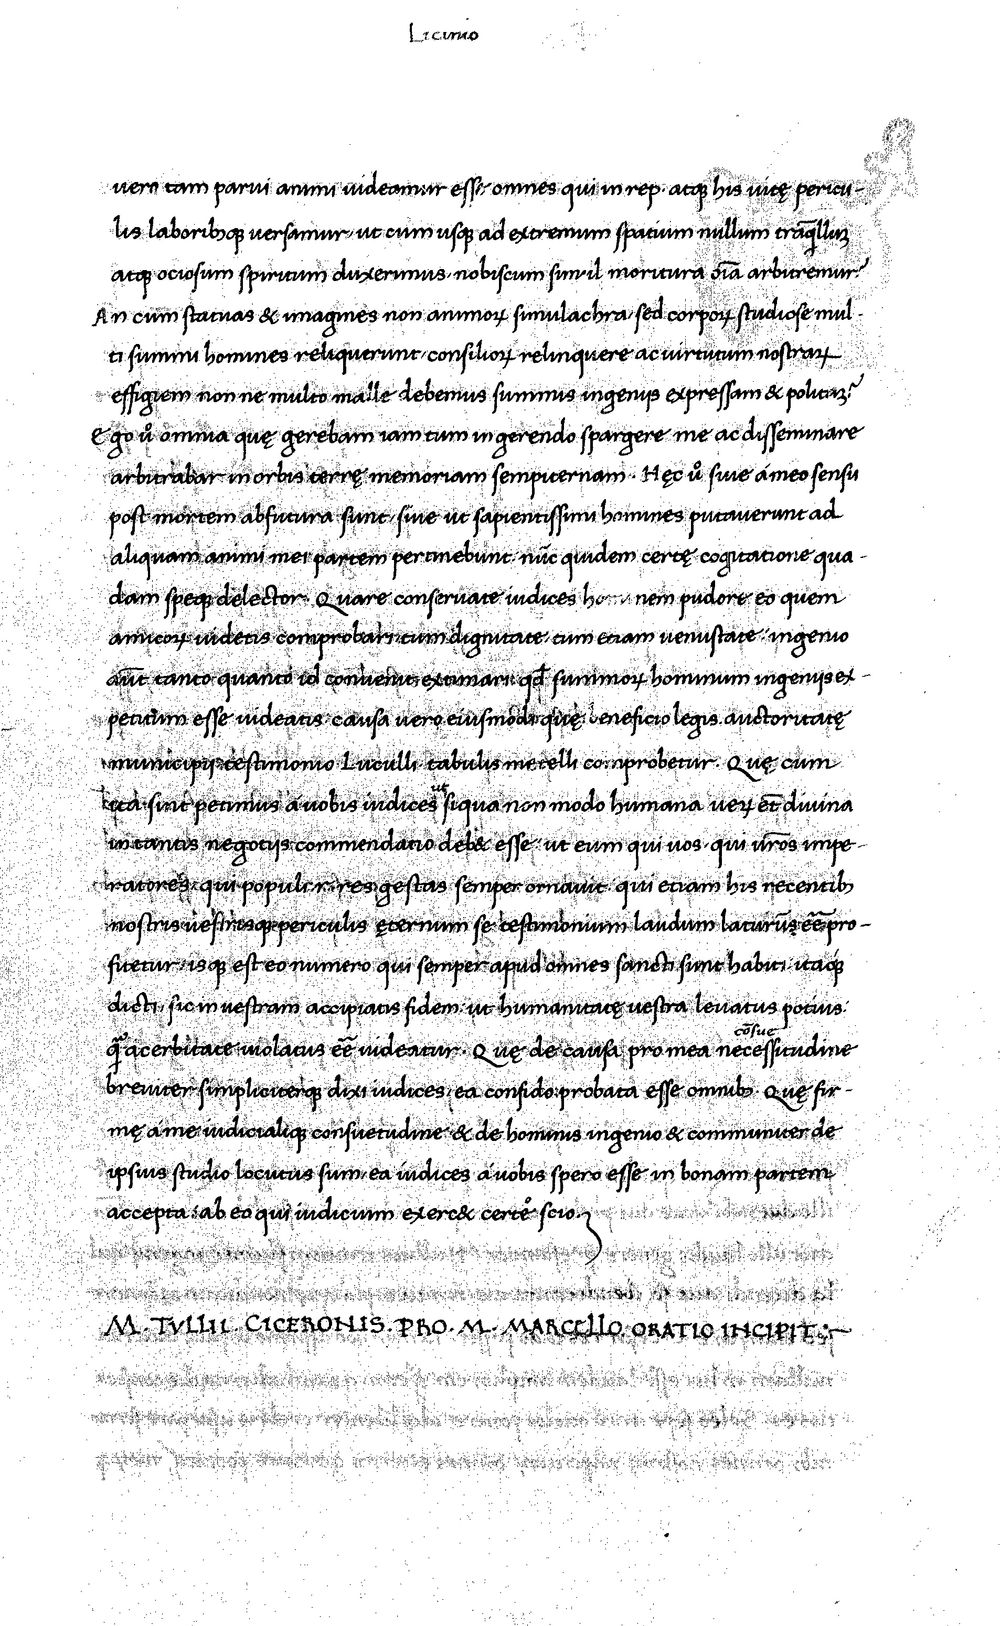 Licinio
vero tam parvi animi videamur esse omnes qui in rep. atq; his vitę pericu-
lis laborib; q; versamur ut cum usq; ad extremum spatium nullum trãq̃llũ
atq; ociosum spiritum duxerimus nobiscum simul moritura oĩa arbitremur?
An cum statuas & imagines non animoꝝ simulachra sed corpoꝝ studiose mul-
ti summi homines reliquerunt consilioꝝ relinquere ac virtutum nostraꝝ
effigiem non ne multo malle debemus summis ingenijs expressam & politam?
Ego ů omnia quę gerebam iam tum in gerendo spargere me ac disseminare
arbitrabar in orbis terrę memoriam sempiternam. Hęc ů sive á meo sensu
post mortem abfutura sunt sive ut sapientissimi homines putaverunt ad
aliquam animi mei partem pertinebunt. nũc quidem certę cogitatione qua-
dam speq; delector. Quare conservate iudices ho nem pudore eo quem
amicoꝝ videtis comprobari tum dignitate tum etiam venustate ingenio
aũt tanto quanto id convenit existimari qđ summoꝝ hominum ingenijs ex-
petitum esse videatis causa vero eiusmodi quę beneficio legis auctoritatę
municipij testimonio Luculli tabulis metelli comprobetur. Quę cum
ita sint petimus á vobis iudices ut siqua non modo humana veꝝ et̃ divina
in tantis negotijs commendatio deb& esse ut eum qui vos qui vr̃os impe-
ratores qui populi r. res gestas semper ornavit qui etiam his recentib;
nostris vestrisq; periculis ęternum se testimonium laudum laturũ eẽ pro-
fitetur isq; est eo numero qui semper apud omnes sancti sunt habiti itaq;
dicti sic in vestram accipiatis fidem ut humanitatę vestra levatus potius
q̃ acerbitate violatus eẽ videatur. Quę de causa pro mea cõsue necessitudine
breviter simpliciterq; dixi iudices ea confido probata esse omnib; Quę fir-
mę á me iudicialiq; consuetudine & de hominis ingenio & communiter de
ipsius studio locutus sum ea iudices á vobis spero esse in bonam partem
accepta ab eo qui iudicium exerc& certe scio
M. TVLLII. CICERONIS. PRO. M. MARCELLO ORATIO INCIPIT